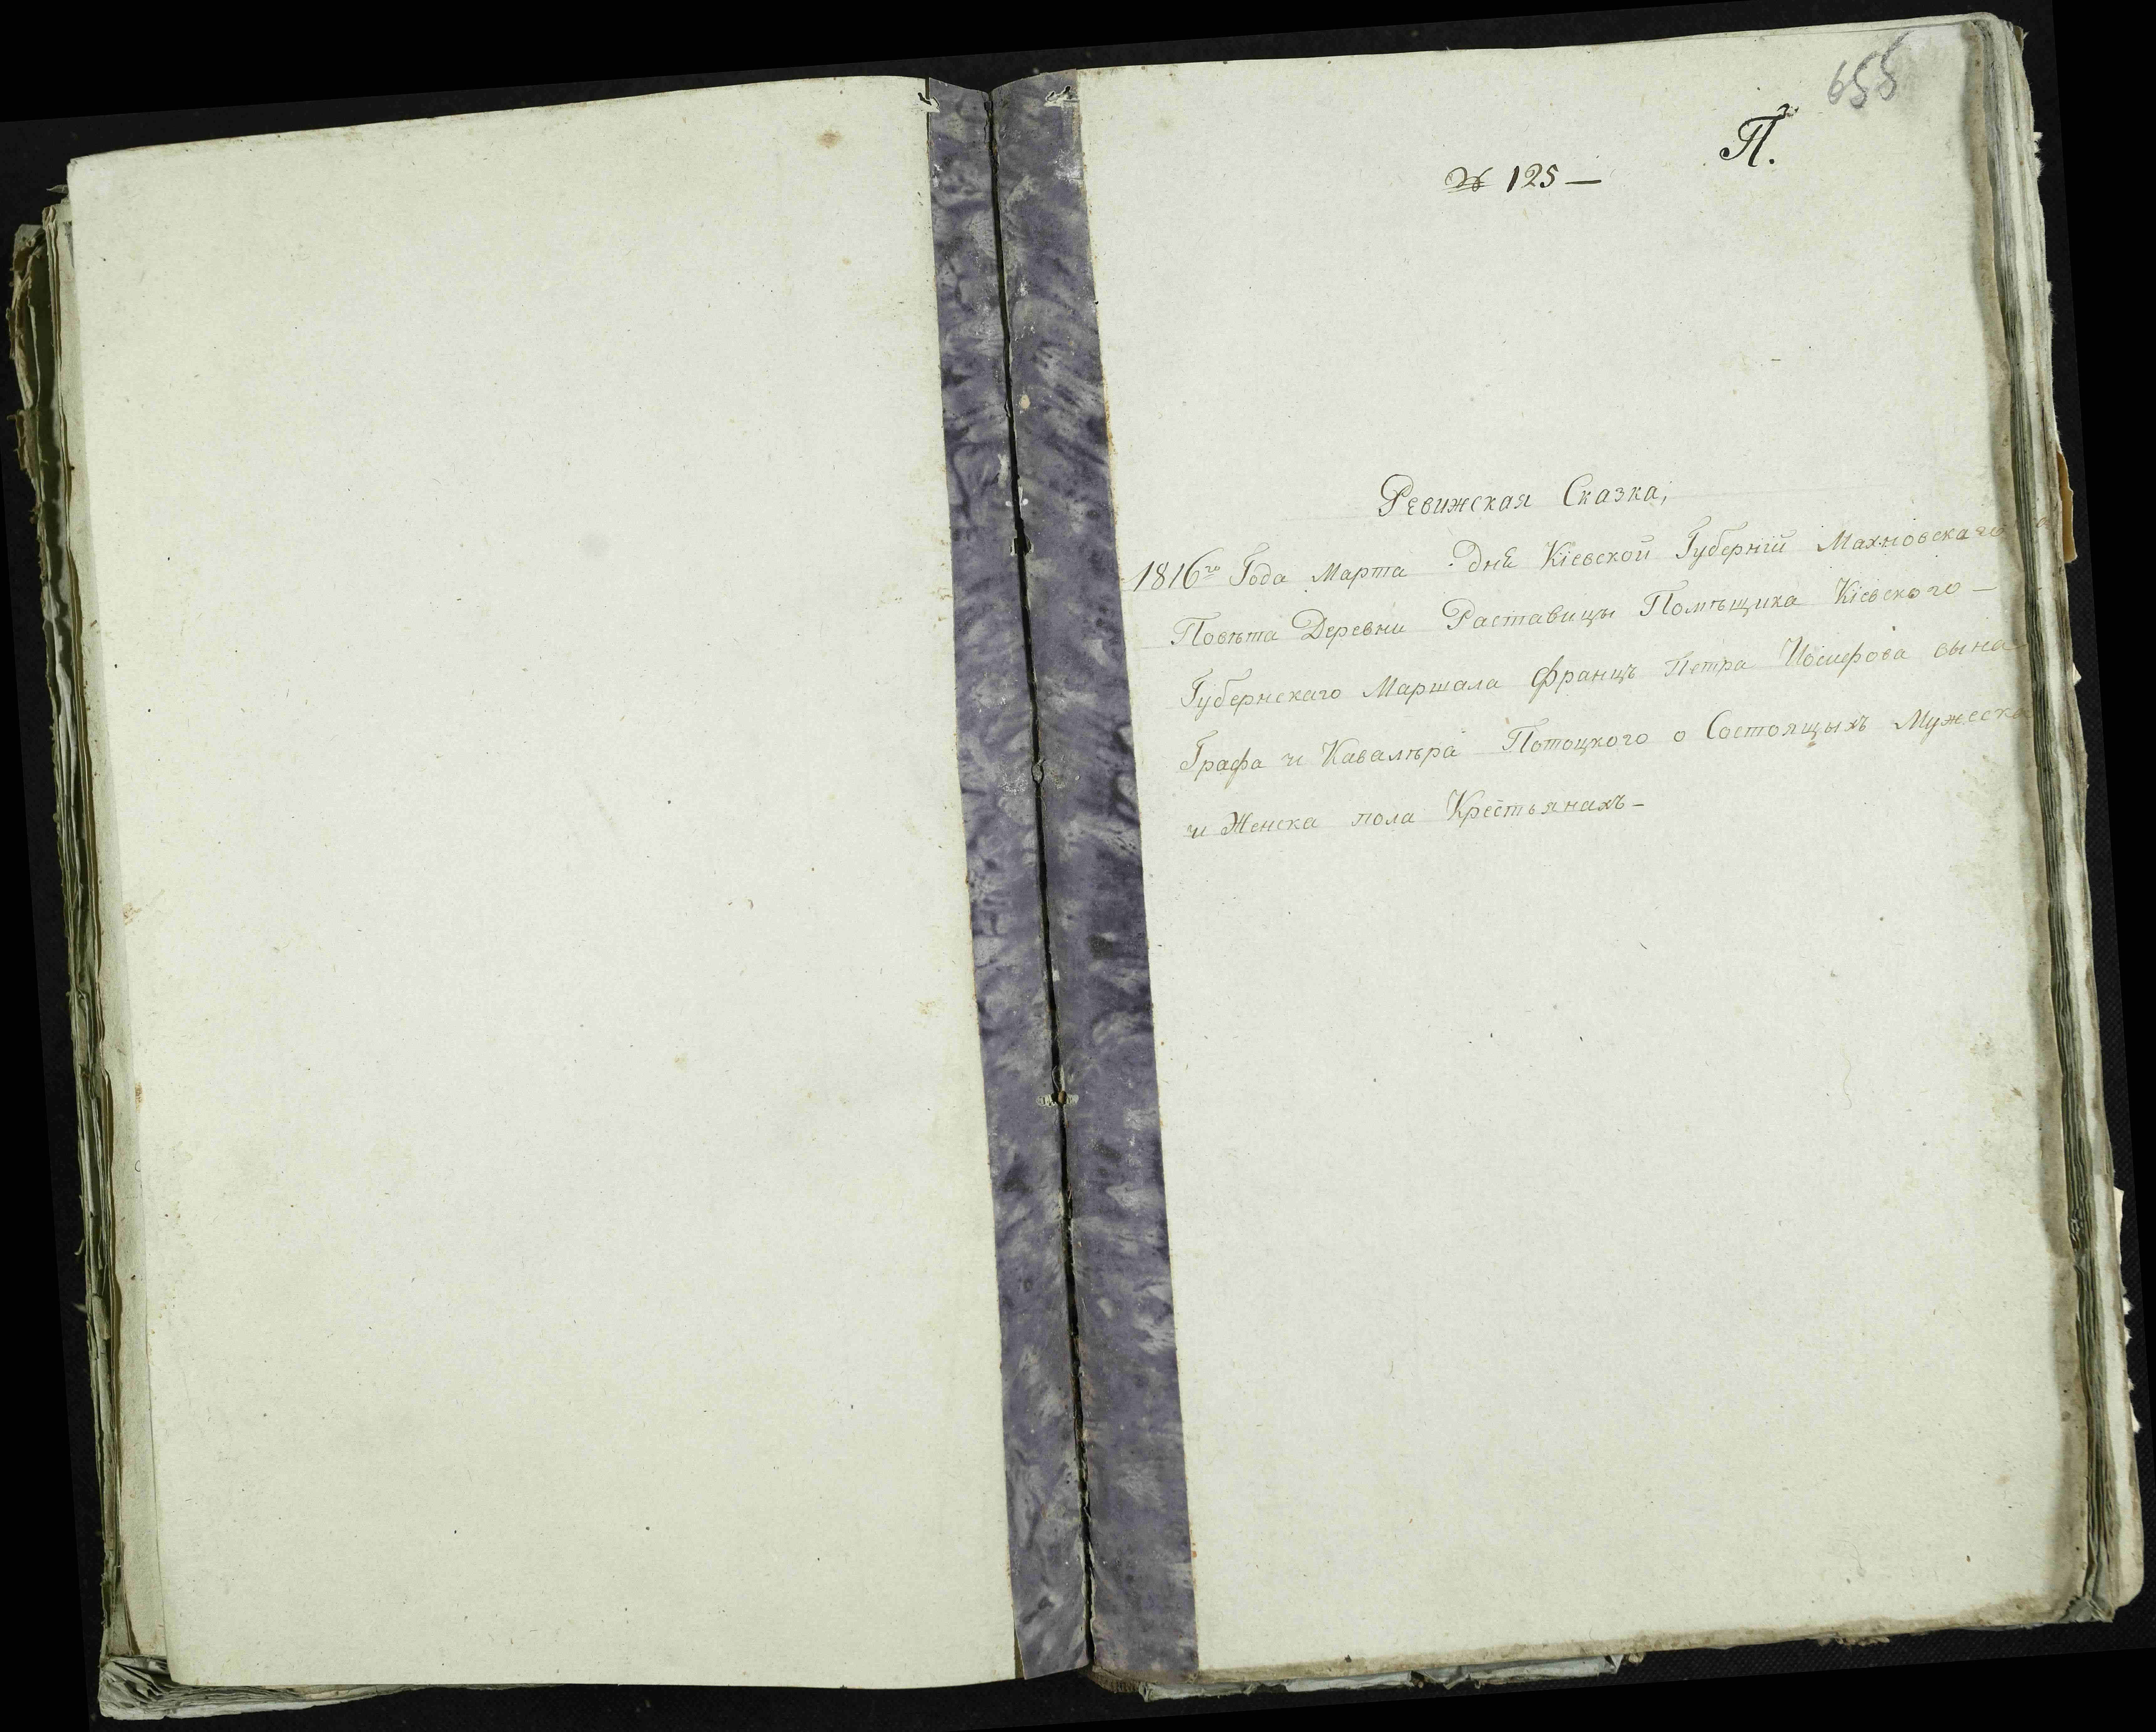 655
П.
№ 125 —
Ревижская Сказка,
1816го Года Марта дня Кіевской Губерніи Махновскаго
Повѣта Деревни Раставицы Помѣщика Кіевского —
Губернскаго Маршала Францъ Петра Иосифова сына
Графа и Кавалѣра Потоцкого о Состоящыхъ Мужеска
и Женска пола Крестьянахъ —